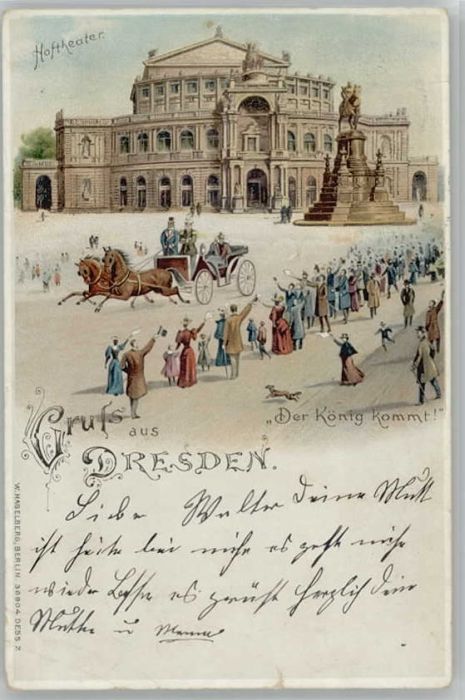 Hoftheater.
„Der König kommt!"
Gruss aus
DRESDEN.
Liebe Walter deine Mutt
ist heute bei mihr es geht mihr
wieder besser es grüßt herzlich dein
Mutter u
W. HAGELBERG, BERLIN. 36904 DESS. 2.